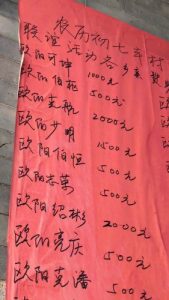 农历初七本村
联谊活动各乡
欧阳才坤 1000元
欧阳伯 500元
欧阳 2000元
欧阳少明 1500元
欧阳伯恒 500元
欧阳志万 500元
欧阳绍彬 2000元
欧阳亮庆 500元
欧阳克潘 500元